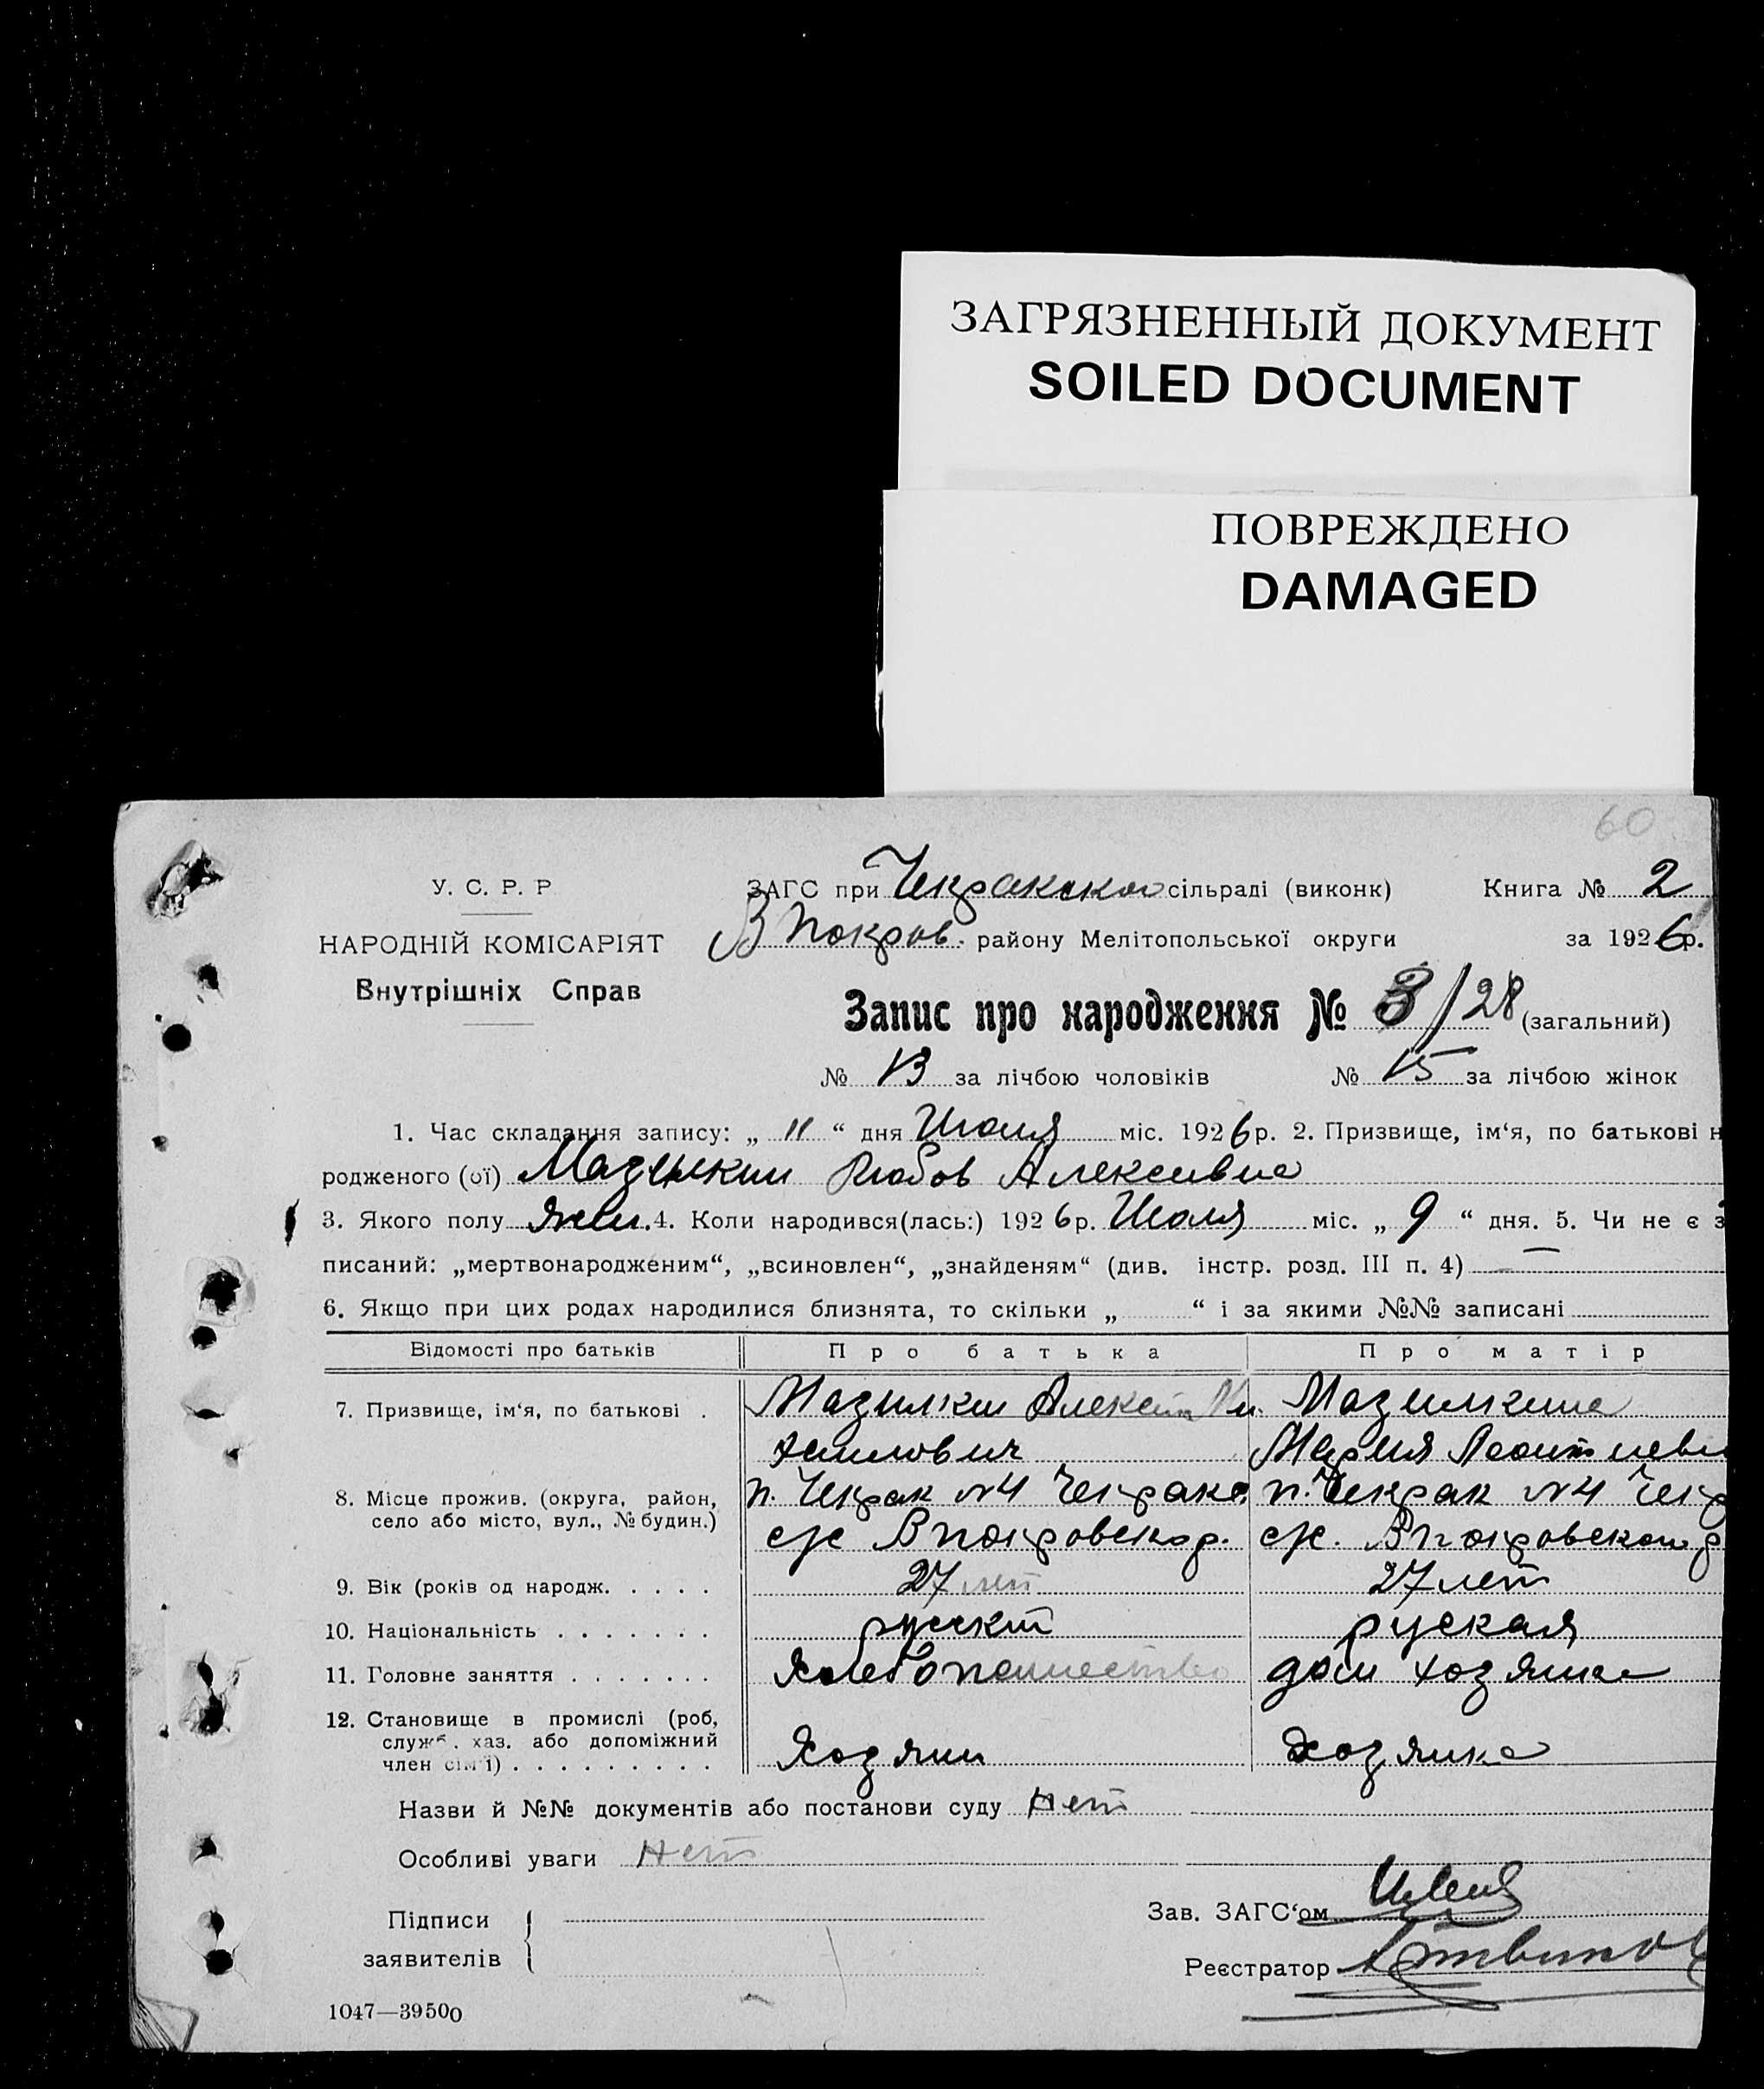 ЗАГРЯЗНЕННЫЙ ДОКУМЕНТ
SOILED DOCUMENT
ПОВРЕЖДЕНО
DAMAGED
60
У. С. Р. Р
НАРОДНІЙ КОМІСАРІЯТ
Внутрішніх Справ
ЗАГС при Чекракской сільраді (виконк) Книга № 2
В Покров. району Мелітопольської округи за 1926 р.
Запис про народження № 3/28 (загальний)
№ 13 за лічбою чоловіків № 15 за лічбою жінок
1. Час складання запису: „ 11 “ дня Июля міс. 1926 р. 2. Призвище, ім‘я, по батькові н
родженого (ої) Мазилкин Любов Алексивна
3. Якого полу жен. 4. Коли народився(лась:) 1926 р. Июля міс. „ 9 “ дня. 5. Чи не є з
писаний: „мертвонародженим“, „всиновлен“, „знайденям“ (див. інстр. розд. III п. 4) —
6. Якщо при цих родах народилися близнята, то скільки „ “ і за якими №№ записані
Відомості про батьків Про батька Про матір
7. Призвище, ім‘я, по батькові . Мазилкин Алексей Мазилкина
Мария
8. Місце прожив. (округа, район, п. Чекрак №4 Чекракс. п. Чекрак №4 Чекр
село або місто, вул., № будин.) с/с В покровског р. с/с. В покровского р
9. Вік (років од народж. . . . . 27 лет 27 лет
10. Національність . . . . . . . рускій руская
11. Головне заняття . . . . . . . Хлебопашество дом хозяика
12. Становище в промислі (роб,
служб. хаз. або допоміжний Хозяин хозяика
член сім‘ї) . . . . . . . . .
Назви й №№ документів або постанови суду Нет
Особливі уваги Нет
Підписи Зав. ЗАГС‘ом
заявителів Реєстратор
1047—39500